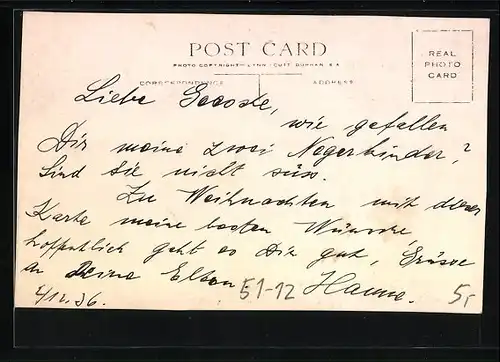 POST CARD
REAL
PHOTO
CARD
PHOTO COPYRIGHT LYNN
CORRESPONDENCE ADDRESS
Liebe
wie gefallen
Dir meine zwei Negerkinder,?
Sind sie nicht süss.
Zu Weihnachten mit dieser
Karte meine besten Wünsche
hoffentlich geht es Dir gut, Grüsse
an Deine Eltern
51-12 Hanne.
4/12.36. 5,